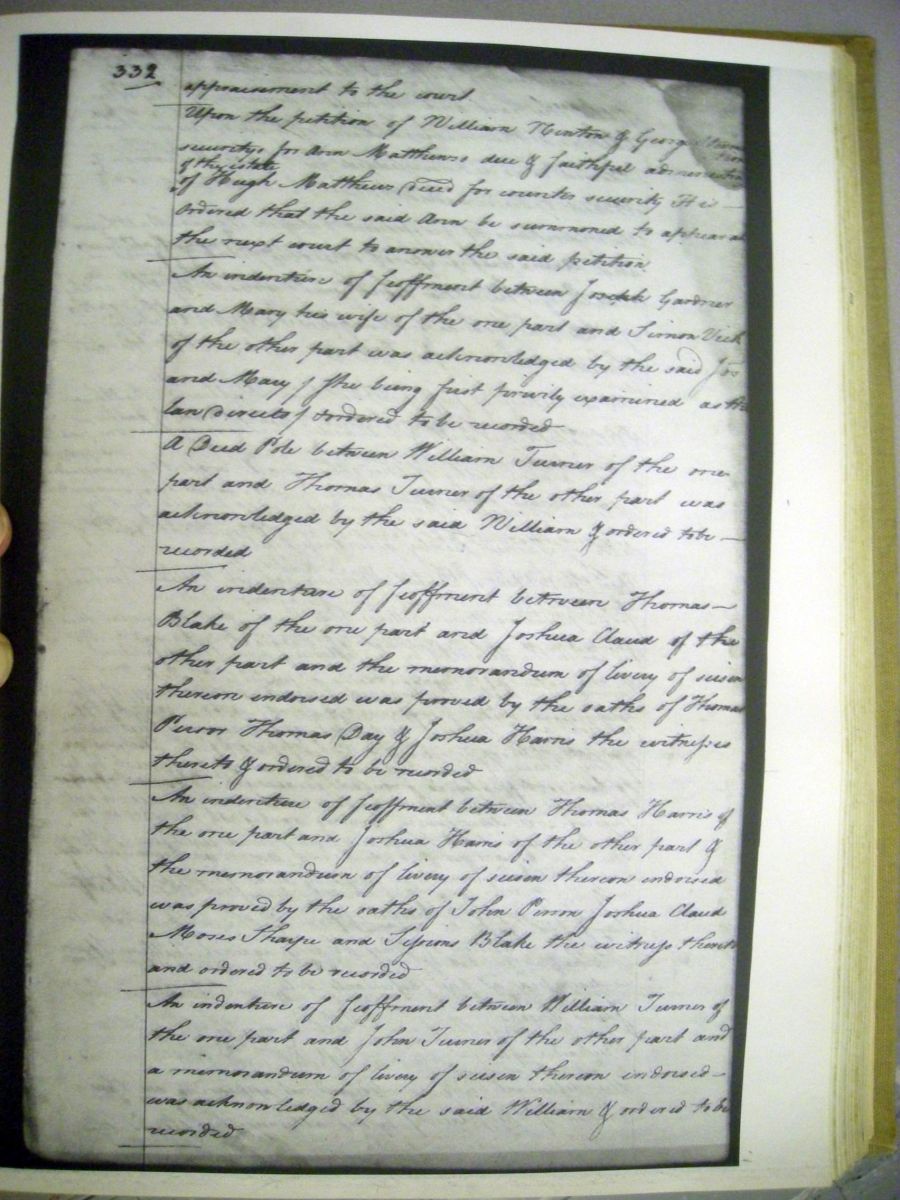 332
appraisement to the court
Upon the petition of William Newton & George
securitys for Ann Matthews due & faithful administration
of the estate
of Hugh Matthews Deced for counter security It is —
Ordered that the said Ann be summoned to appear at
the next court to answer the said petition
An indenture of feoffment between Joseph Gardner
and Mary his wife of the one part and Simon
of the other part was acknowledged by the said Jos
and Mary / she being first privily examined as the
law directs / & ordered to be recorded
A Deed Pole between William Turner of the one
part and Thomas Turner of the other part was
acknowledged by the said William & ordered to be —
recorded
An indenture of feoffment between Thomas —
Blake of the one part and Joshua Claud of the
other part and the memorandum of livery of seisen
thereon endorsed was proved by the oaths of Thomas
Person Thomas Day & Joshua Harris the witnesses
thereto & ordered to be recorded
An indenture of feoffment between Thomas Harris of
the one part and Joshua Harris of the other part &
the memorandum of livery of seisen thereon endorsed
was proved by the oaths of John Person Joshua Claud
Moses Sharpe and Sessions Blake the witness thereto
and ordered to be recorded
An indenture of feoffment between William Turner of
the one part and John Turner of the other part and
a memorandum of livery of seisen thereon indorsed —
was acknowledged by the said William & ordered to be
recorded